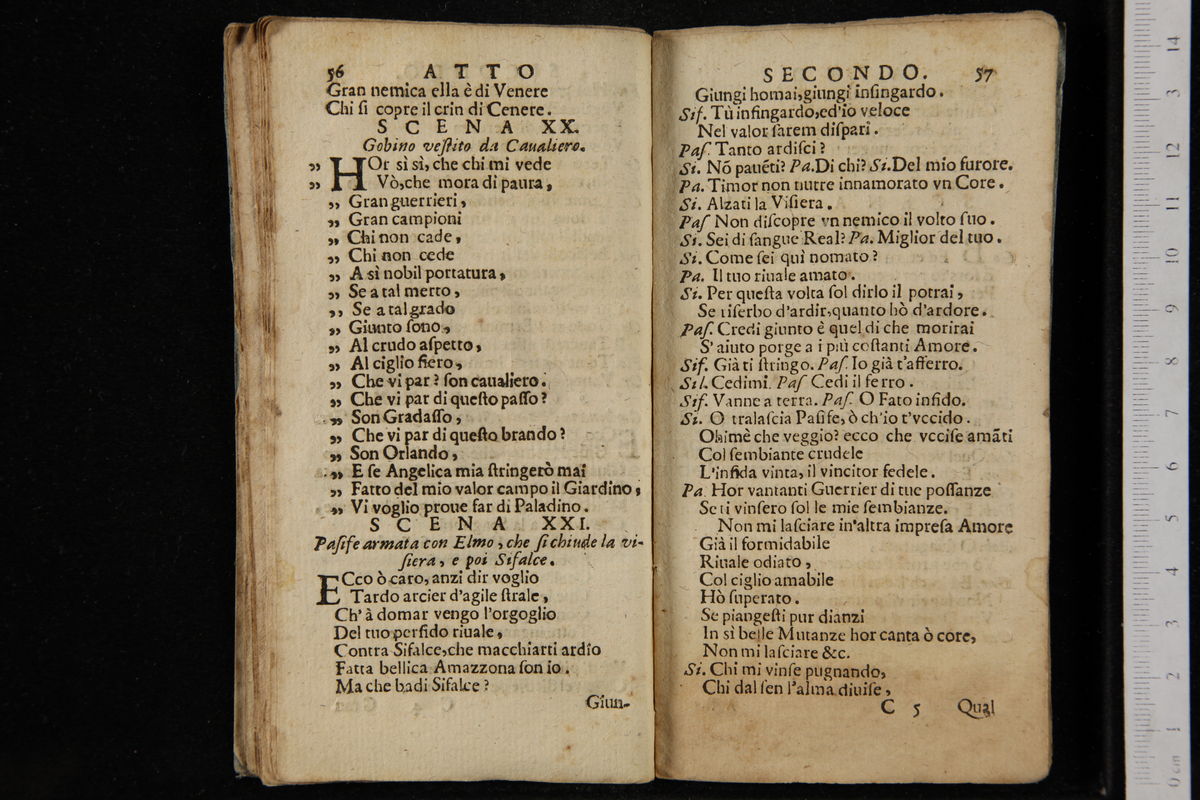 56 ATTO
Gran nemica ella è di Venere
Chi ſi copre il crin di Cenere.
SCENA XX.
Gobino veſtito da Caualiero.
„ HOr sì sì, che chi mi vede
„ Vò,che mora di paura,
„ Gran guerrieri,
„ Gran campioni
„ Chi non cade,
„ Chi non cede
„ A sì nobil portatura,
„ Se a tal merto,
„ Se a tal grado
„ Giunto ſono,
„ Al crudo aſpetto,
„ Al ciglio fiero,
„ Che vi par? ſon caualiero.
„ Che vi par di queſto paſſo?
„ Son Gradaſſo,
„ Che vi par di queſto brando?
„ Son Orlando,
„ E ſe Angelica mia ſtringerò mai
„ Fatto del mio valor campo il Giardino,
„ Vi voglio proue far di Paladino.
SCENA XXI.
Paſife armata con Elmo, che ſi chiude la vi-
ſiera, e poi Sifalce.
ECco ò caro, anzi dir voglio
Tardo arcier d'agile ſtrale,
Ch' à domar vengo l'orgoglio
Del tuo perfido riuale,
Contra Sifalce,che macchiarti ardìo
Fatta bellica Amazzona ſon io.
Ma che badi Sifalce?
Giun-
SECONDO. 57
Giungi homai,giungi infingardo.
Sif. Tù infingardo,ed'io veloce
Nel valor ſarem diſpari.
Paſ. Tanto ardiſci?
Si. Nõ pauẽti? Pa.Di chi? Si.Del mio furore.
Pa. Timor non nutre innamorato vn Core.
Si. Alzati la Viſiera.
Paſ Non diſcopre vn nemico il volto ſuo.
Si. Sei di ſangue Real? Pa. Miglior del tuo.
Si. Come ſei quì nomato?
Pa. Il tuo riuale amato.
Si. Per queſta volta ſol dirlo il potrai,
Se riſerbo d'ardir,quanto hò d'ardore.
Paſ. Credi giunto è quel di che morirai
S' aiuto porge a i più coſtanti Amore.
Sif. Già ti ſtringo. Paſ. Io già t'afferro.
Sil. Cedimi. Paſ Cedi il ferro.
Sif. Vanne a terra. Paſ. O Fato infido.
Si. O tralaſcia Paſife, ò ch'io t'vccido.
Ohimè che veggio? ecco che vcciſe amãti
Col ſembiante crudele
L'infida vinta, il vincitor fedele.
Pa. Hor vantanti Guerrier di tue poſſanze
Se ti vinſero ſol le mie ſembianze.
Non mi laſciare in'altra impreſa Amore
Già il formidabile
Riuale odiato,
Col ciglio amabile
Hò ſuperato.
Se piangeſti pur dianzi
In sì belle Mutanze hor canta ò core,
Non mi laſciare &c.
Si. Chi mi vinſe pugnando,
Chi dal ſen l'alma diuiſe,
C 5 Qual
14
3
12
11
10
9
8
7
6
5
4
3
2
1
0 cm